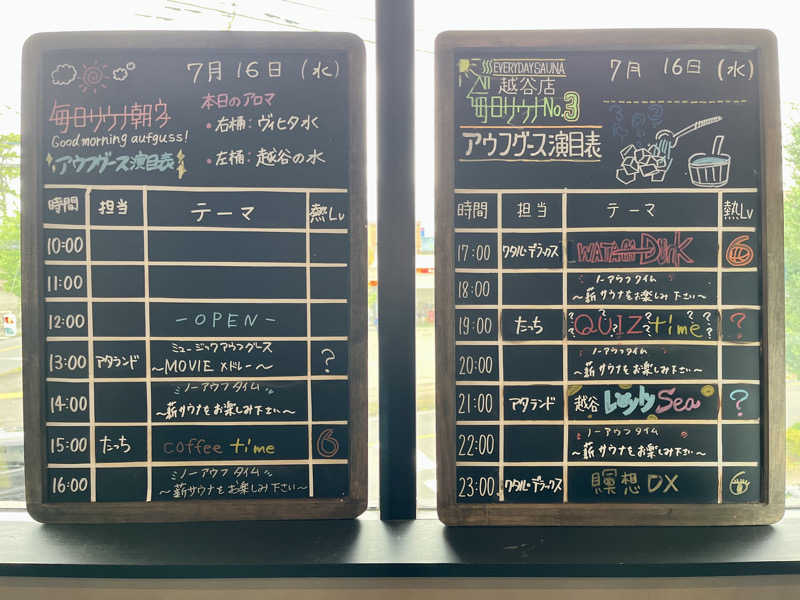 7月16日(水)
毎日サウナ朝ウ
Good morning aufguss!
アウフグース演目表
本日のアロマ
・右桶：ヴィヒタ水
・左桶：越谷の水
時間 担当 テーマ 熱Lv
10:00
11:00
12:00 -OPEN-
13:00 アタランド ミュージックアウフグース
～MOVIEメドレー～ ?
14:00 ノーアウフタイム
～薪サウナをお楽しみ下さい～
15:00 たっち coffee time 6
16:00 ノーアウフタイム
～薪サウナをお楽しみ下さい～
EVERYDAY SAUNA
越谷店
毎日サウナNo.3
アウフグース演目表
7月16日(水)
時間 担当 テーマ 熱Lv
17:00 ワタル・デラックス WATARU Dunk 6
18:00 ノーアウフタイム
～薪サウナをお楽しみ下さい～
19:00 たっち ???QUIZ time??? ?
20:00 ノーアウフタイム
～薪サウナをお楽しみ下さい～
21:00 アタランド 越谷 Sea ?
22:00 ノーアウフタイム
～薪サウナをお楽しみ下さい～
23:00 ワタル・デラックス 瞑想DX 6